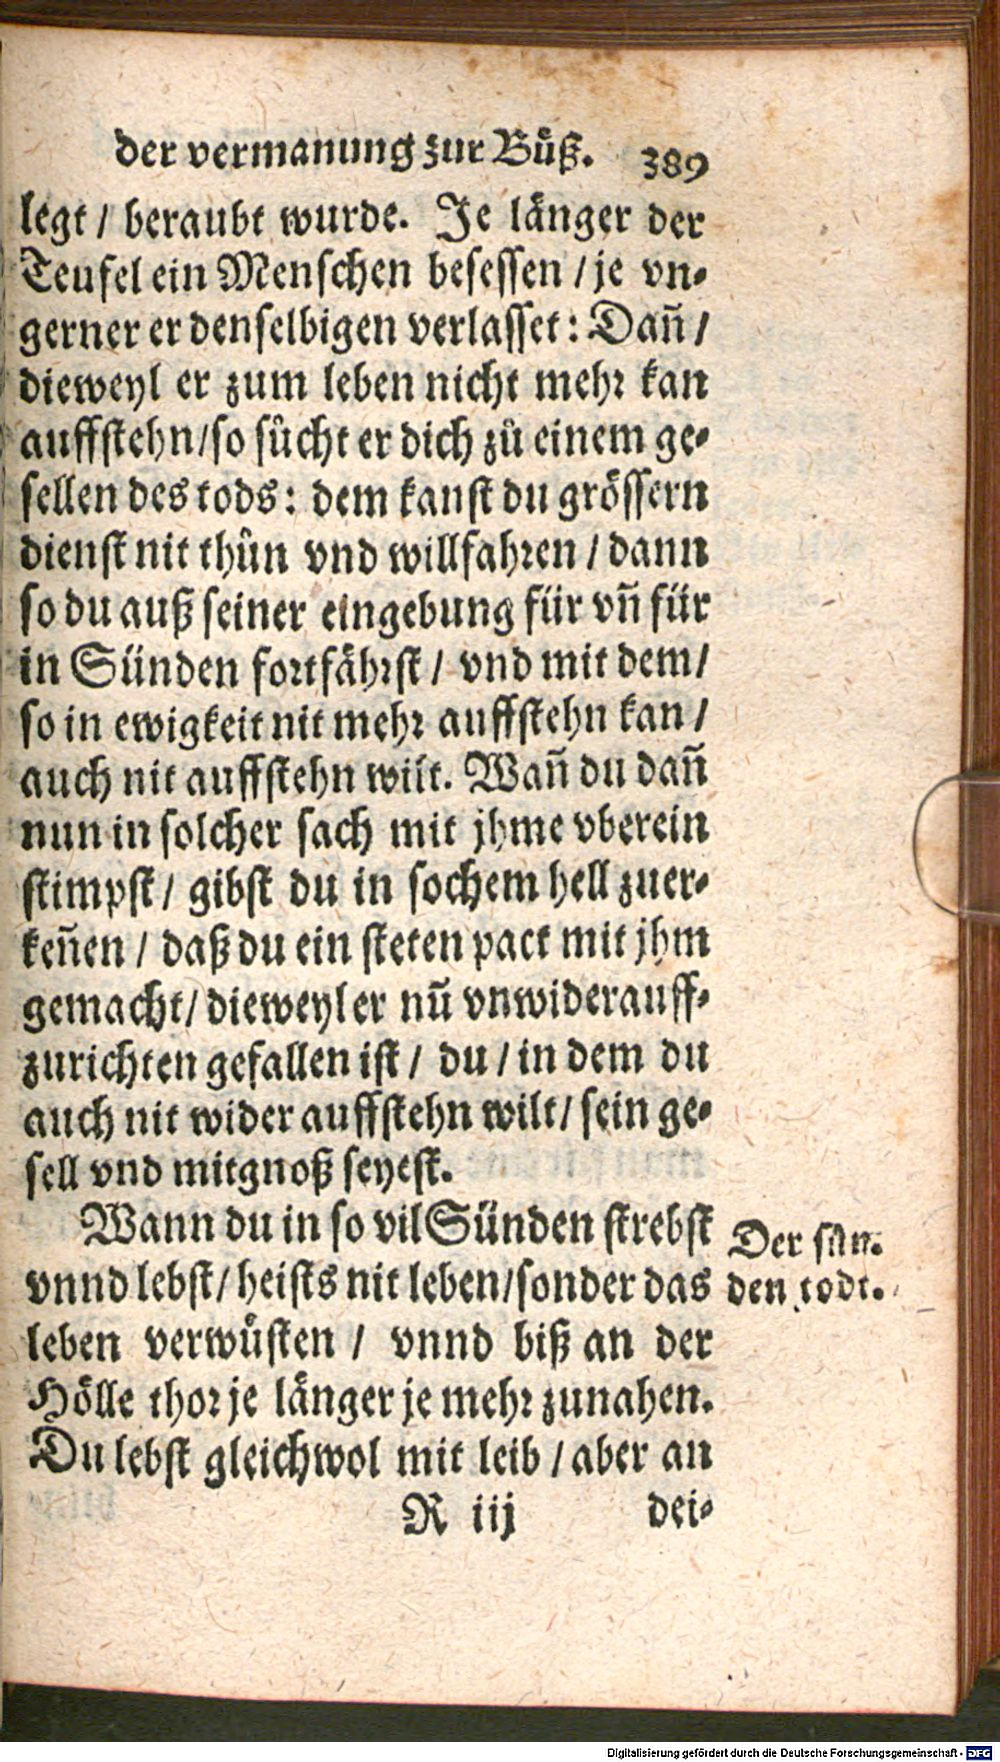 der vermanung zur Bůß. 389
legt / beraubt wurde. Je länger der
Teufel ein Menschen besessen / je vn-
gerner er denselbigen verlasset : Dañ /
dieweyl er zum leben nicht mehr kan
auffstehn/so sůcht er dich zů einem ge-
sellen des tods : dem kanst du grössern
dienst nit thůn vnd willfahren / dann
so du auß seiner eingebung für vñ für
in Sünden fortfährst / vnd mit dem/
so in ewigkeit nit mehr auffstehn kan /
auch nit auffstehn wilt. Wañ du dañ
nun in solcher sach mit jhme vberein
stimpst / gibst du in sochem hell zuer-
keñen / daß du ein steten pact mit jhm
gemacht/ dieweyl er nū vnwiderauff-
zurichten gefallen ist / du / in dem du
auch nit wider auffstehn wilt/ sein ge-
sell vnd mitgnoß seyest.
Wann du in so vil Sünden strebst
vnnd lebst/ heists nit leben/sonder das
leben verwůsten / vnnd biß an der
Hölle thor je länger je mehr zunahen.
Du lebst gleichwol mit leib / aber an
Der sün-
den todt.
R iij dei-
Digitalisierung gefördert durch die Deutsche Forschungsgemeinschaft - DFG